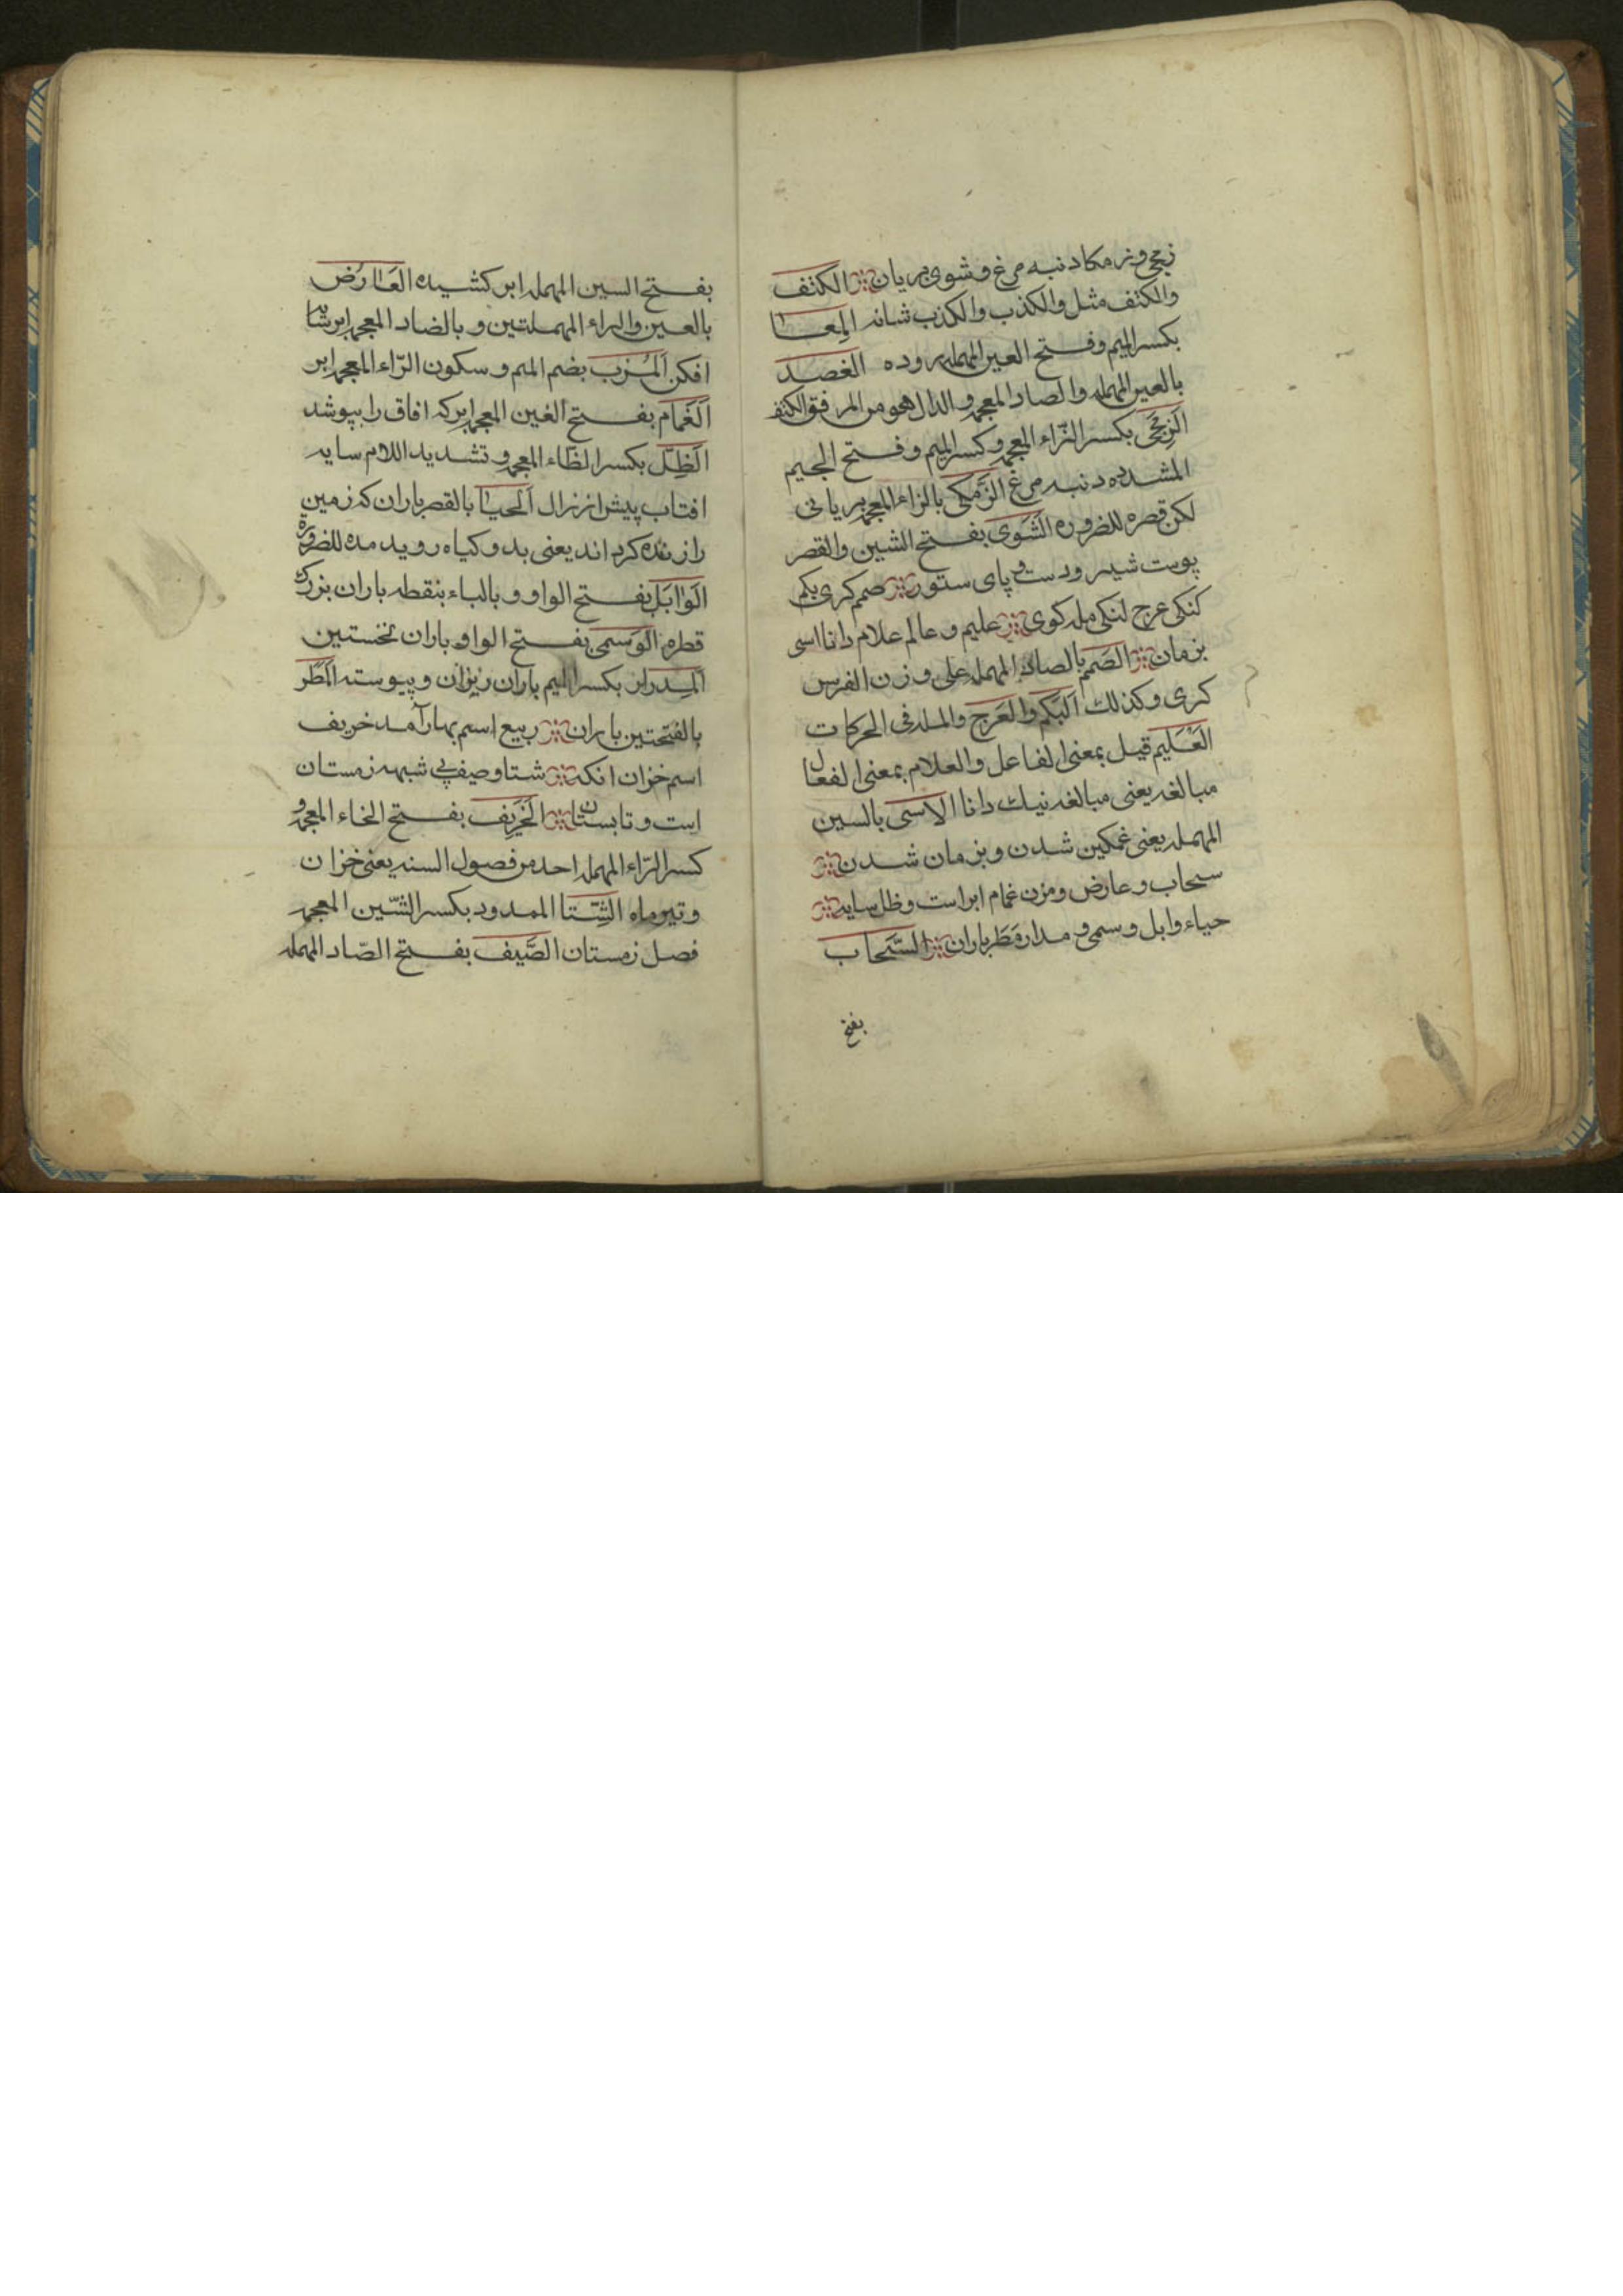 زمجی وزمکا دنبه مرغ وشوی بریان الکتف
والکتف مثل والکذب والکذب شانه المِعَا
بکسر المیم وفتح العین المهمله روده الغصد
بالعین المهمله والصاد المعجمه والدال هو من المرفق الکتف
الزِمِجّی بکسر الزّاء المعجمه وکسر المیم وفتح الجیم
المشدده دنبه مرغ الزَمکی بالزاء المعجمه بریانی
لکن قصره للضروره الشَوَی بفتح الشین والقصر
پوست شیر ودست وپای ستور صمم کری بکم
کنکی عرج لنکی مله کوی علیم و عالم علام دانا اسی
بزمان الصَمَم بالصاد المهمله علی وزن الفرس
کری وکذلك اَلبَکَم والعَرج والمله فی الحرکات
العَلیم قیل بمعنی الفاعل والعلام بمعنی الفعال
مبالغه یعنی مبالغه نیك دانا الاسَی بالسین
المهمله یعنی غمکین شدن وبزمان شدن
سحاب و عارض ومزن غمام ابر است وظل سایه
حیاء وابل وسمی و مدار مَطَر باران السَّحاب
بفتح
بفتح السین المهمله ابر کشیده العَارُض
بالعین والراء المهملتین و بالضاد المعجمه ابر سایه
افکن اَلمُزب بضم المیم و سکون الزّاء المعجمه ابر
اَلغَمام بفتح الغین المعجمه ابر که افاق را بپوشد
الظِلّ بکسر الظاء المعجمه و تشدید اللام سایه
افتاب پیش از زوال اَلحیا بالقصر باران که زمین
را زنده کرداند یعنی بدو کیاه روید مده للضروره
الوَابَل بفتح الواو و بالباء بنقطه باران بزرك
قطره الوَسمی بفتح الواو باران نخستین
اَلمِدرار بکسر المیم باران ریزان و پیوسته المَطَر
بالفتحتین باران ربیع اسم بهار آمد خریف
اسم خزان انکه شتا وصیف پی شبهه زمستان
است و تابستان الخَرِیف بفتح الخاء المعجمه و
کسر الرّاء المهمله احد من فصول السنه یعنی خزان
و تیر ماه الشِّتا الممدود بکسر الشّین المعجمه
فصل زمستان الصَّیف بفتح الصّاد المهمله